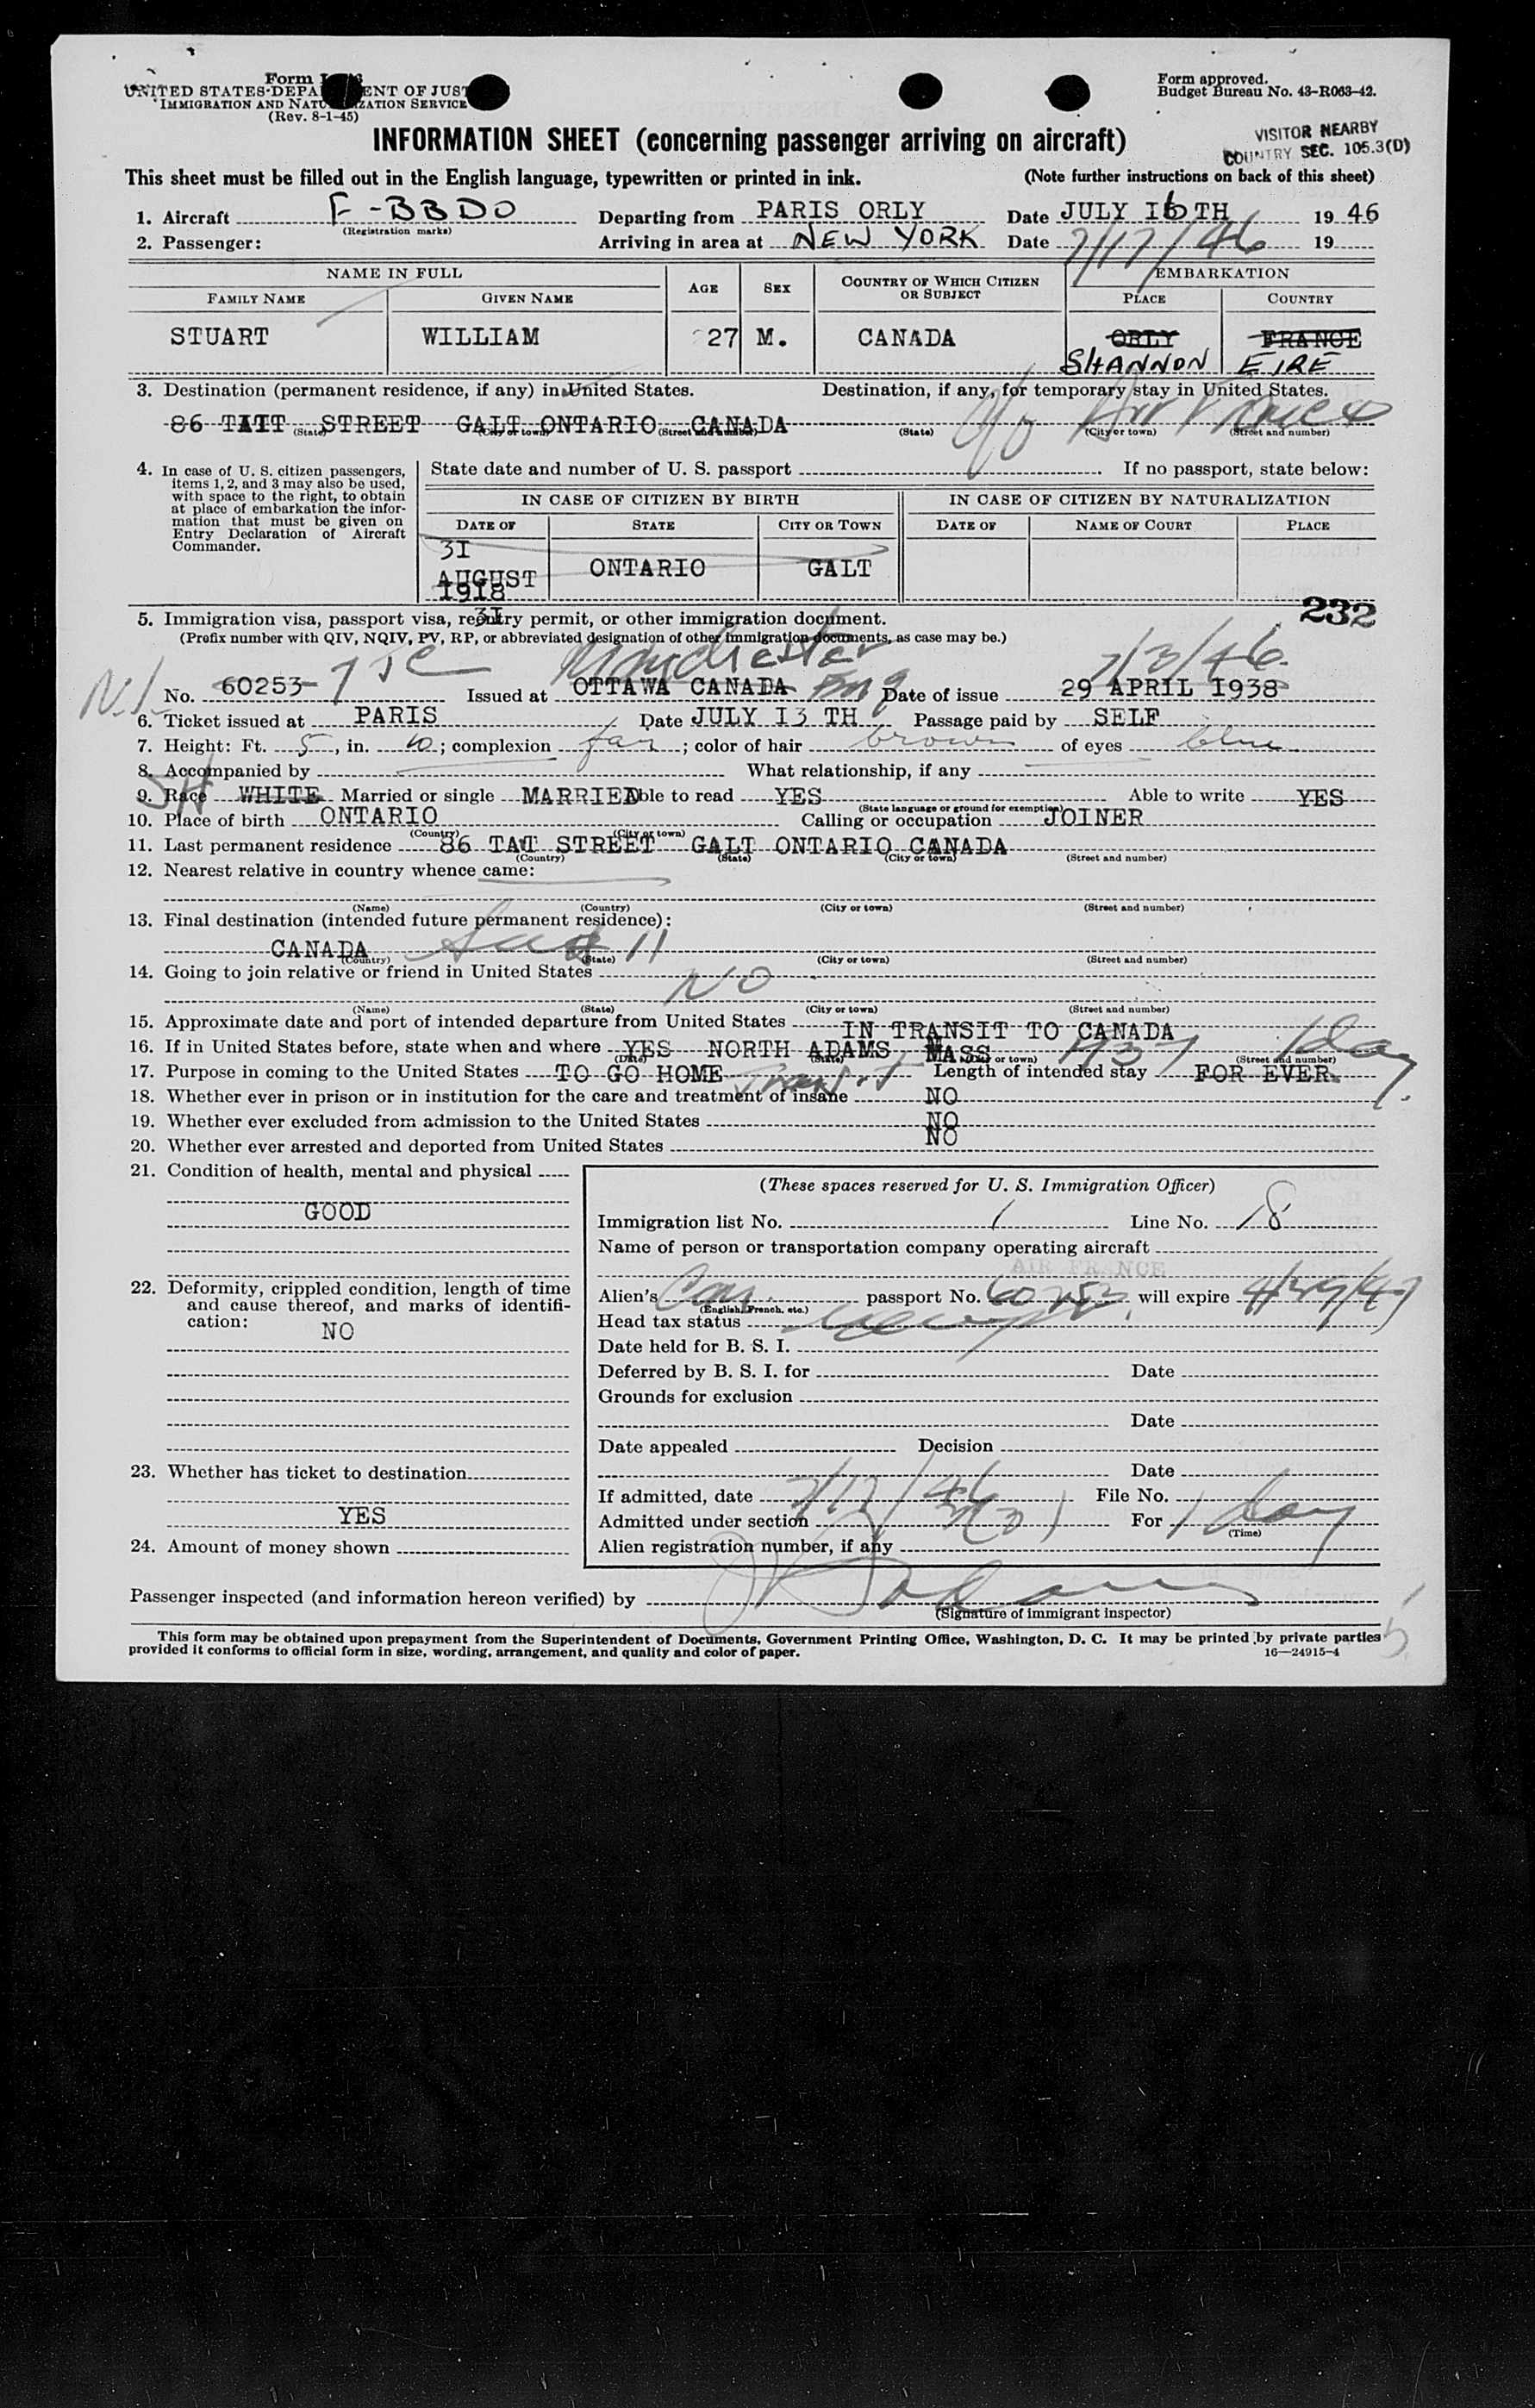 Form I
UNITED STATES DEPA ENT OF JUST
IMMIGRATION AND NATU IZATION SERVICE
(Rev. 8-1-45)
Form approved.
Budget Bureau No. 43-R063-42.
INFORMATION SHEET (concerning passenger arriving on aircraft)
VISITOR NEARBY
COUNTRY SEC. 105.3(D)
This sheet must be filled out in the English language, typewritten or printed in ink. (Note further instructions on back of this sheet)
1. Aircraft F-BBDO Departing from PARIS ORLY Date JULY I6 TH 1946
(Registration marks)
2. Passenger: Arriving in area at NEW YORK Date 7/17/46 19
NAME IN FULL AGE SEX COUNTRY OF WHICH CITIZEN OR SUBJECT EMBARKATION
FAMILY NAME GIVEN NAME PLACE COUNTRY
STUART WILLIAM 27 M. CANADA ORLY FRANCE
SHANNON EIRE
3. Destination (permanent residence, if any) in United States. Destination, if any, for temporary stay in United States.
86 TAIT STREET GALT ONTARIO CANADA c/o Air France
(State) (City or town) (Street and number) (State) (City or town) (Street and number)
4. In case of U. S. citizen passengers, items 1, 2, and 3 may also be used, with space to the right, to obtain at place of embarkation the information that must be given on Entry Declaration of Aircraft Commander.
State date and number of U. S. passport If no passport, state below:
IN CASE OF CITIZEN BY BIRTH IN CASE OF CITIZEN BY NATURALIZATION
DATE OF STATE CITY OR TOWN DATE OF NAME OF COURT PLACE
3I AUGUST 1918 ONTARIO GALT
232
5. Immigration visa, passport visa, reentry permit, or other immigration document.
3I
(Prefix number with QIV, NQIV, PV, RP, or abbreviated designation of other immigration documents, as case may be.)
Manchester Eng 7/3/46
No. 60253 Issued at OTTAWA CANADA Date of issue 29 APRIL I938
6. Ticket issued at PARIS Date JULY I3 TH Passage paid by SELF
7. Height: Ft. 5, in. 10; complexion fair; color of hair brown of eyes blue
8. Accompanied by What relationship, if any
9. Race WHITE Married or single MARRIED ble to read YES Able to write YES
(State language or ground for exemption)
10. Place of birth ONTARIO Calling or occupation JOINER
(Country) (City or town)
11. Last permanent residence 86 TAIT STREET GALT ONTARIO CANADA
(Country) (State) (City or town) (Street and number)
12. Nearest relative in country whence came:
(Name) (Country) (City or town) (Street and number)
13. Final destination (intended future permanent residence):
CANADA
(Country) (State) (City or town) (Street and number)
14. Going to join relative or friend in United States NO
(Name) (State) (City or town) (Street and number)
15. Approximate date and port of intended departure from United States IN TRANSIT TO CANADA
16. If in United States before, state when and where YES NORTH ADAMS MASS 1937 1 day.
(Date) (State) (City or town) (Street and number)
17. Purpose in coming to the United States TO GO HOME Transit Length of intended stay FOR EVER
18. Whether ever in prison or in institution for the care and treatment of insane NO
19. Whether ever excluded from admission to the United States NO
20. Whether ever arrested and deported from United States NO
21. Condition of health, mental and physical
GOOD
22. Deformity, crippled condition, length of time and cause thereof, and marks of identification:
NO
23. Whether has ticket to destination
YES
24. Amount of money shown
(These spaces reserved for U. S. Immigration Officer)
Immigration list No. 1 Line No. 18
Name of person or transportation company operating aircraft
AIR FRANCE
Alien's Can. passport No. 60253 will expire 4/29/47
(English, French, etc.)
Head tax status
Date held for B. S. I.
Deferred by B. S. I. for Date
Grounds for exclusion
Date
Date appealed Decision
Date
If admitted, date 7/17/46 File No.
Admitted under section 3(2) For 1 day
(Time)
Alien registration number, if any
Passenger inspected (and information hereon verified) by
(Signature of immigrant inspector)
This form may be obtained upon prepayment from the Superintendent of Documents, Government Printing Office, Washington, D. C. It may be printed by private parties
provided it conforms to official form in size, wording, arrangement, and quality and color of paper. 16—24915-4